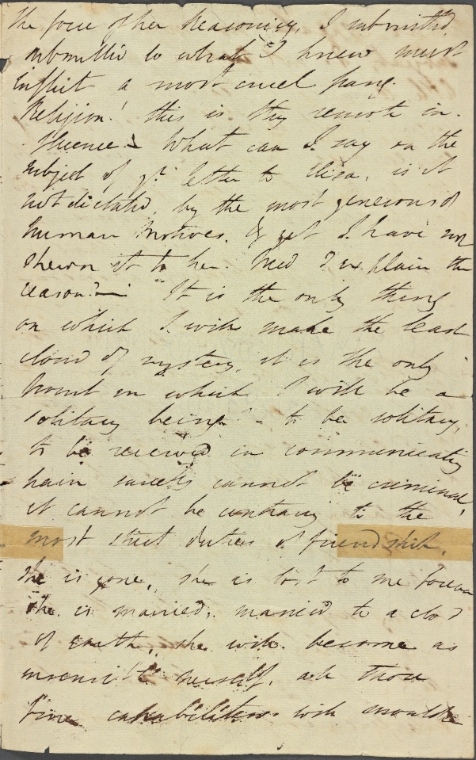 the force of her reasoning. I submitted
submitted to what I knew must
inflict a most cruel pang.
Religion! this is thy remote in-
fluence! What can I say on the
subject of yr. letter to Eliza, is it
not dictated by the most generous of
human motives, & yet I have not
shewn it to her. Need I explain the
reason? – "It is the only thing
on which I will make the least
cloud of mystery, it is the only
point in which I will be a
solitary being" – to be solitary,
to be reserved in communicating
pain surely cannot be criminal,
it cannot be contrary to the
most strict duties of friendship.
She is gone, she is lost to me forever
she is married, married to a clod
of earth, she will become as
insensible herself, all those
fine capabilities will moulder